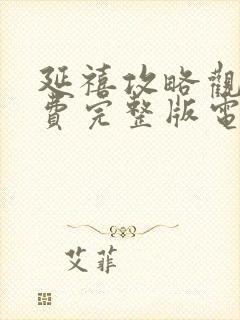 延禧攻略觀
費完整版電
艾菲